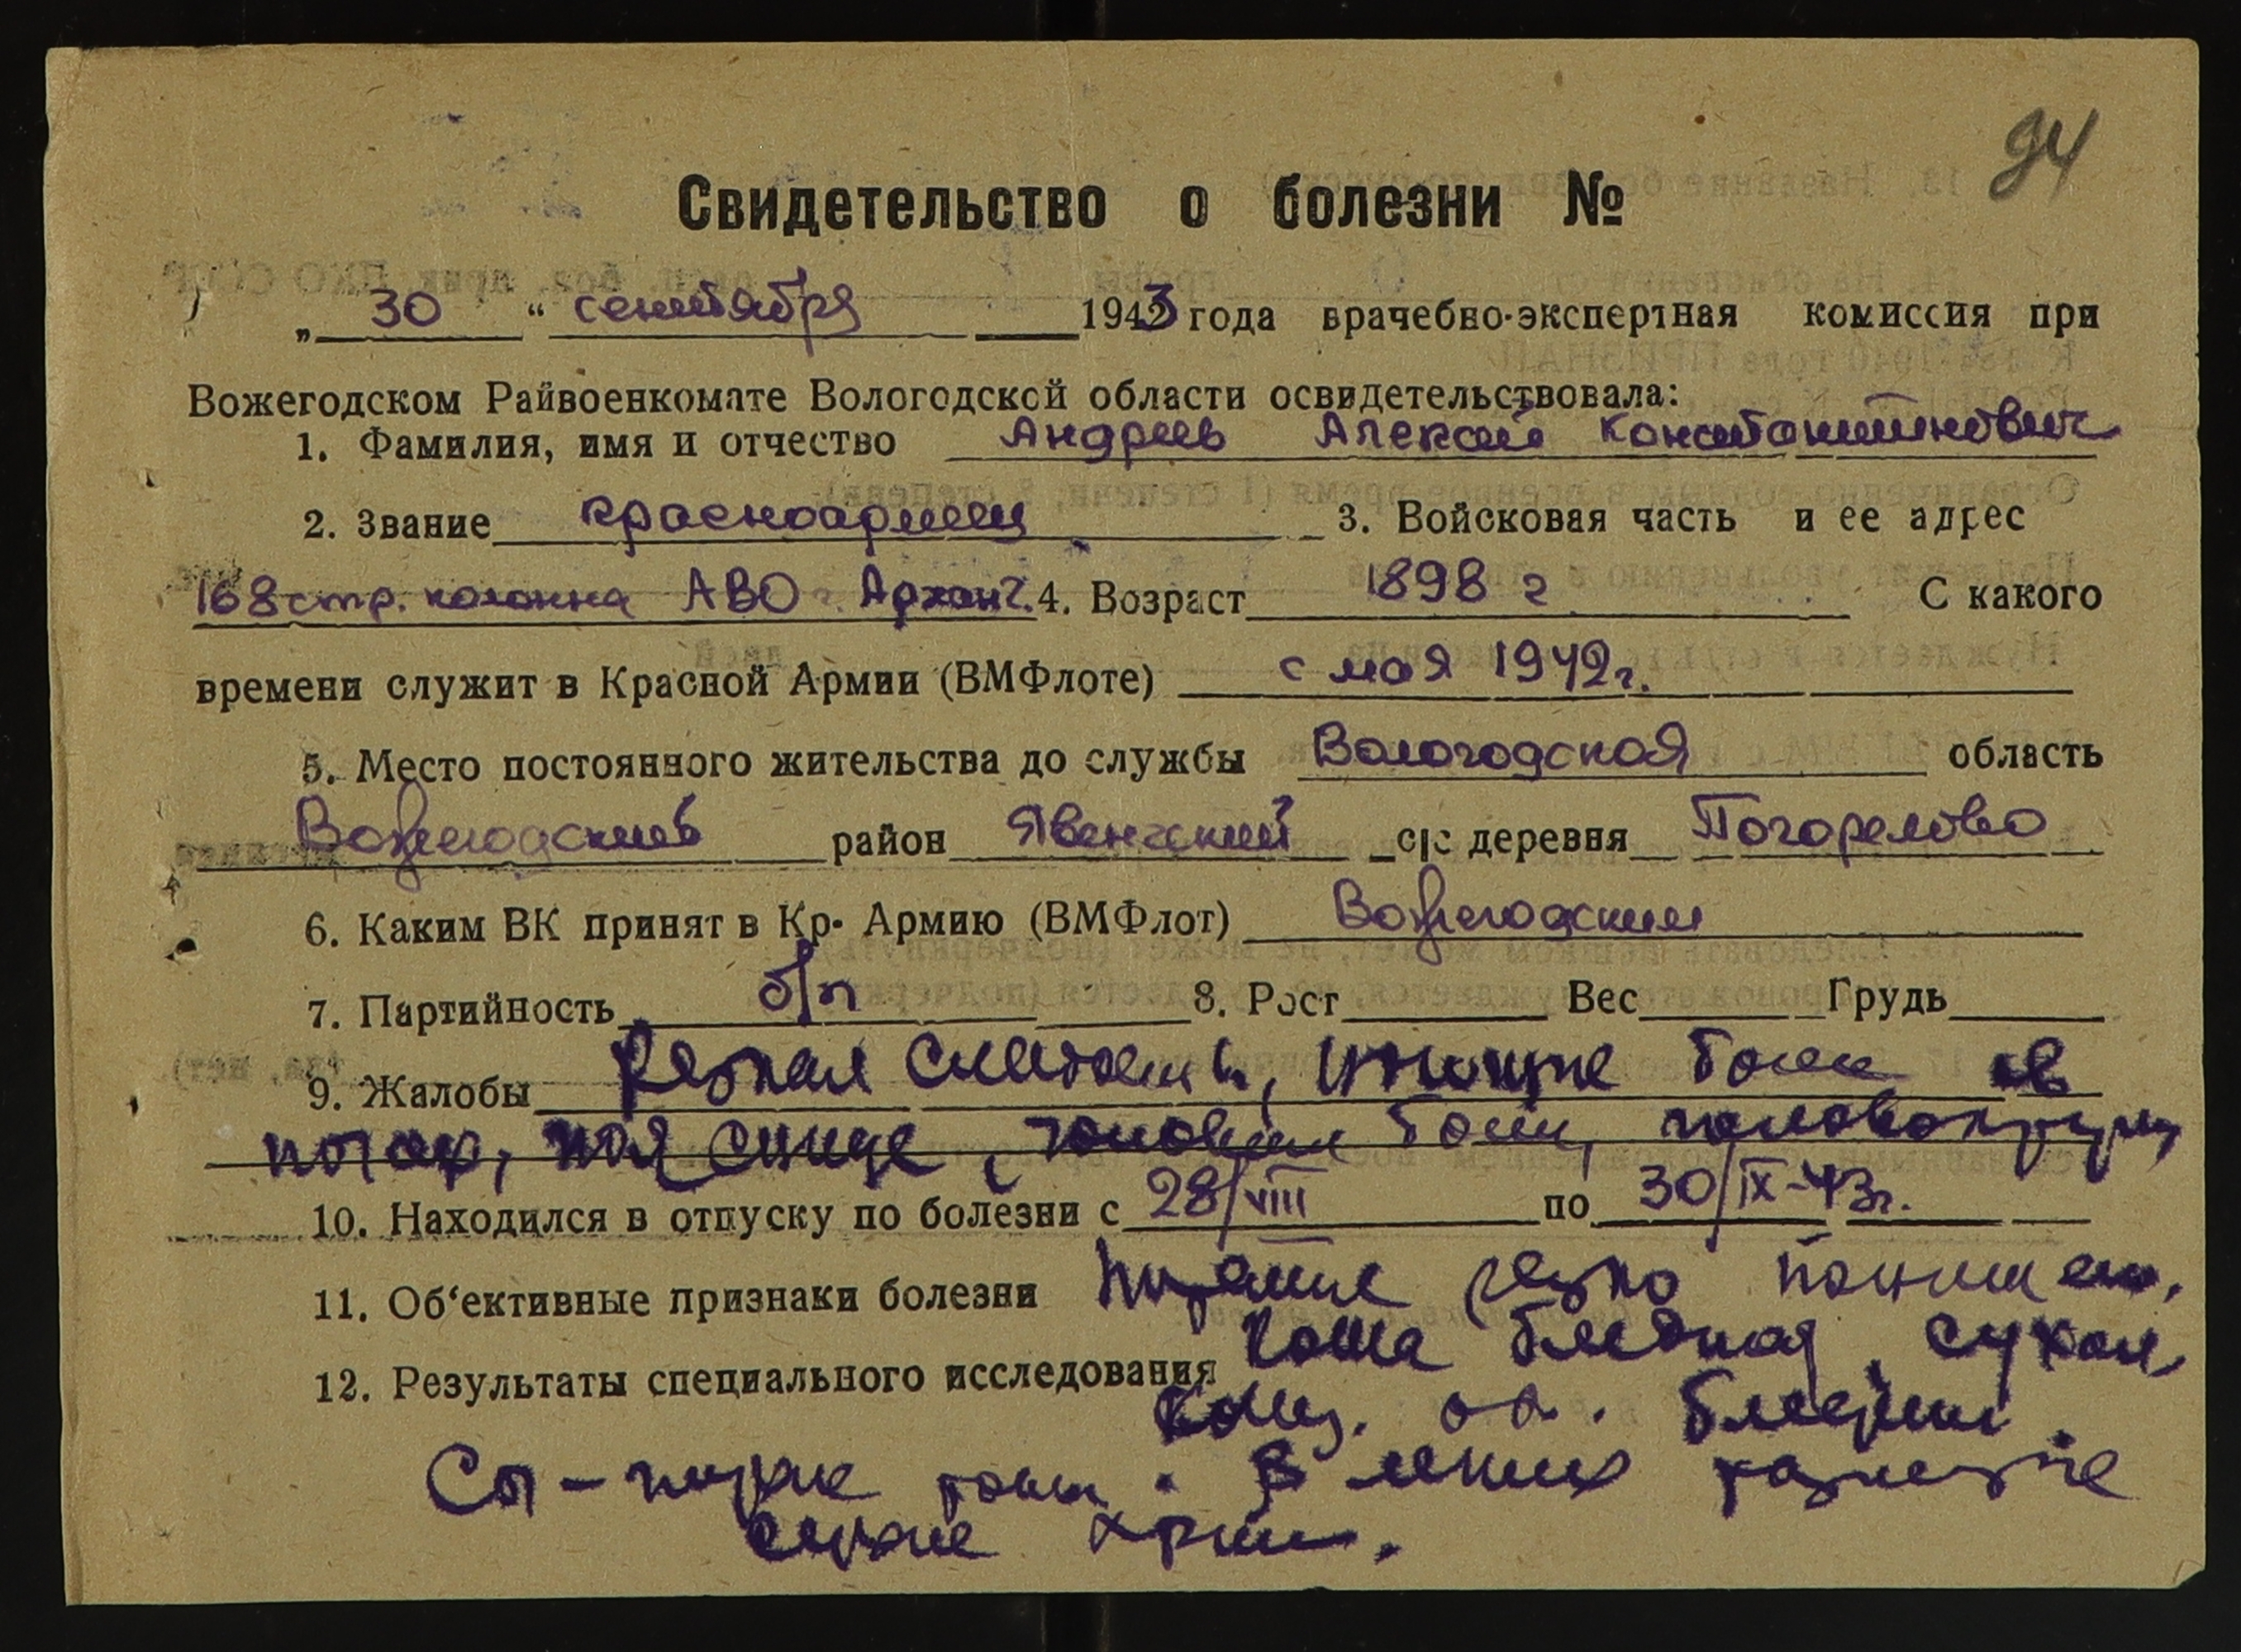 94
Свидетельство о болезни №
„ 30 “ сентября 1943 года врачебно-экспертная комиссия при
Вожегодском Райвоенкомате Вологодской области освидетельствовала:
1. Фамилия, имя и отчество Андреев Алексей Константинович
2. Звание красноармеец 3. Войсковая часть и ее адрес
168 стр. колонна АВО г. Арханг. 4. Возраст 1898 г С какого
времени служит в Красной Армии (ВМФлоте) с мая 1942 г.
5. Место постоянного жительства до службы Вологодская область
Вожегодский район Явенгский с/с деревня Погорелово
6. Каким ВК принят в Кр. Армию (ВМФлот) Вожегодским
7. Партийность б/п 8. Рост Вес Грудь
9. Жалобы Резкая слабость, боли в
ногах, пояснице, головные боли, головокруж
10. Находился в отпуску по болезни с 28/VIII по 30/IX-43г.
11. Об‘ективные признаки болезни Питание резко понижено.
Кожа бледная, сухая,
12. Результаты специального исследования
слиз. об. бледны.
Cor - глухие тоны. В легких
сухие хрипы.